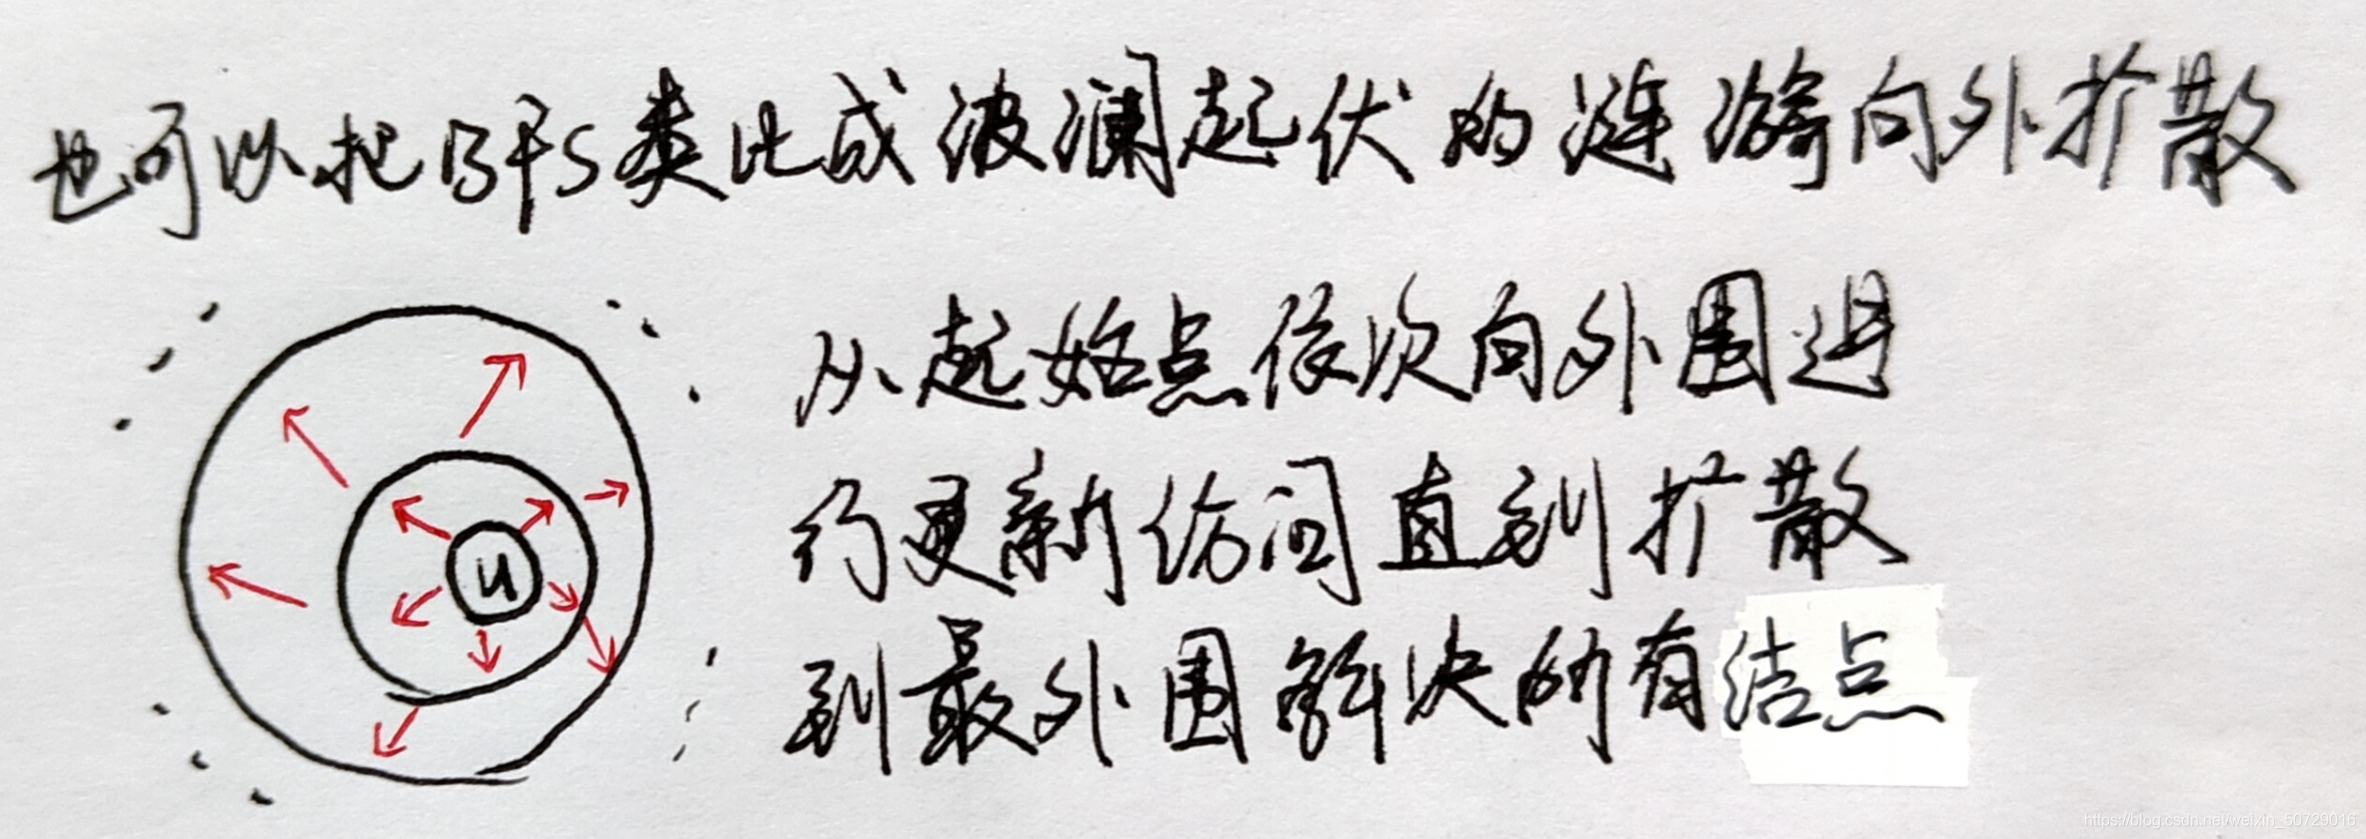 也可以把BFS类比成波澜起伏的涟漪向外扩散
从起始点依次向外围进
行更新访问直到扩散
到最外围解决所有结点
u
https://blog.csdn.net/weixin_50729016